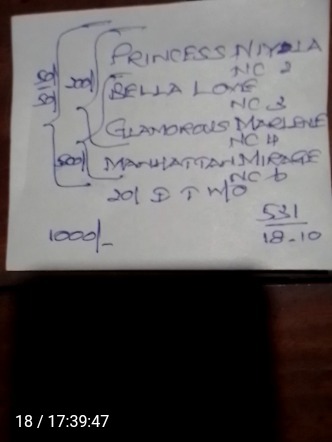 PRINCESS NIYALA
NC 2
BELLA LOVE
NC 3
GLAMOROUS MARLENE
NC 4
MANHATTAN MIRAGE
NC 6
20/ D T W/O
1000/-
531
18-10
18 / 17:39:47